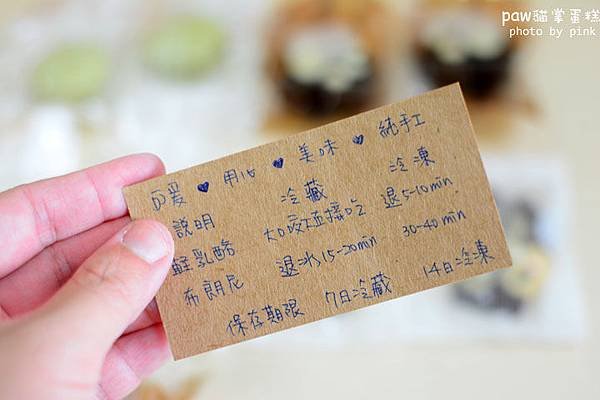 paw貓掌蛋糕
photo by pink
可愛 ♥ 用心 ♥ 美味 ♥ 純手工
說明 冷藏 冷凍
輕乳酪 大口咬直接吃 退5-10min
布朗尼 退冰15-20min 30-40min
保存期限 7日冷藏 14日冷凍